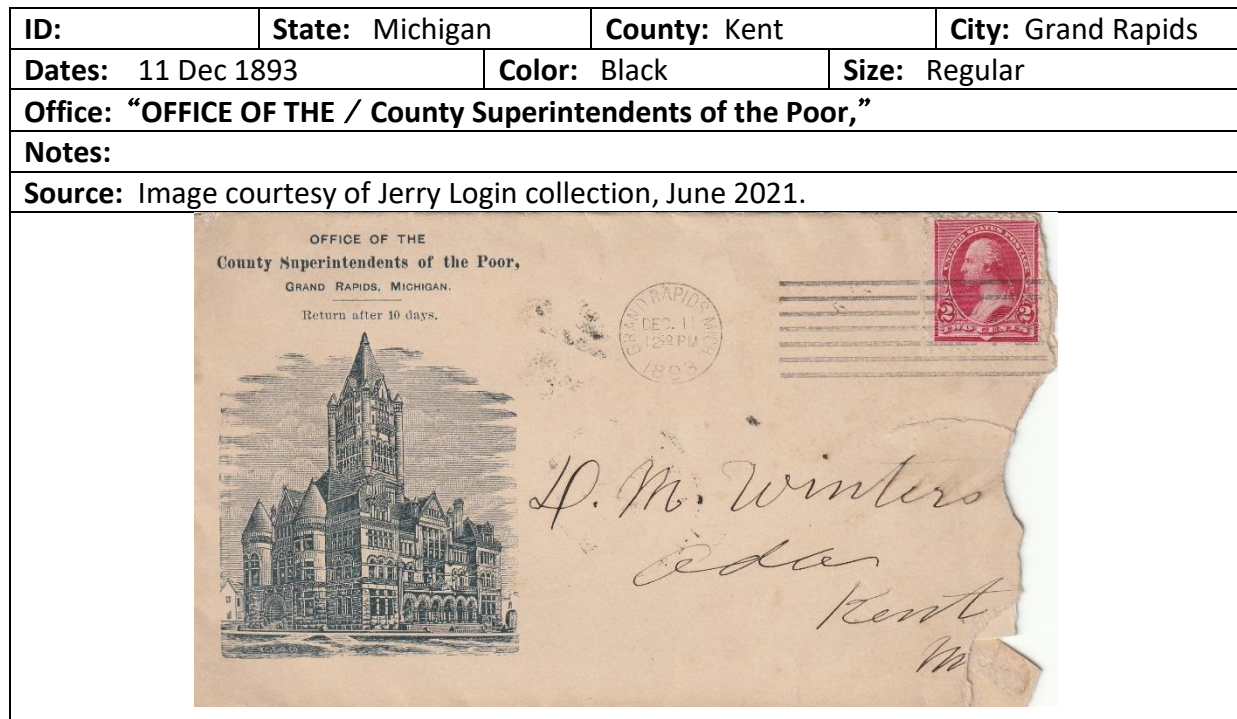 ID: State: Michigan County: Kent City: Grand Rapids
Dates: 11 Dec 1893 Color: Black Size: Regular
Office: “OFFICE OF THE / County Superintendents of the Poor,”
Notes:
Source: Image courtesy of Jerry Login collection, June 2021.
OFFICE OF THE
County Superintendents of the Poor,
GRAND RAPIDS, MICHIGAN.
Return after 10 days.
GRAND RAPIDS, MICH.
DEC. 11
12 PM
1893
UNITED STATES POSTAGE
2 2
TWO CENTS
D. M. Winters
Ada
Kent